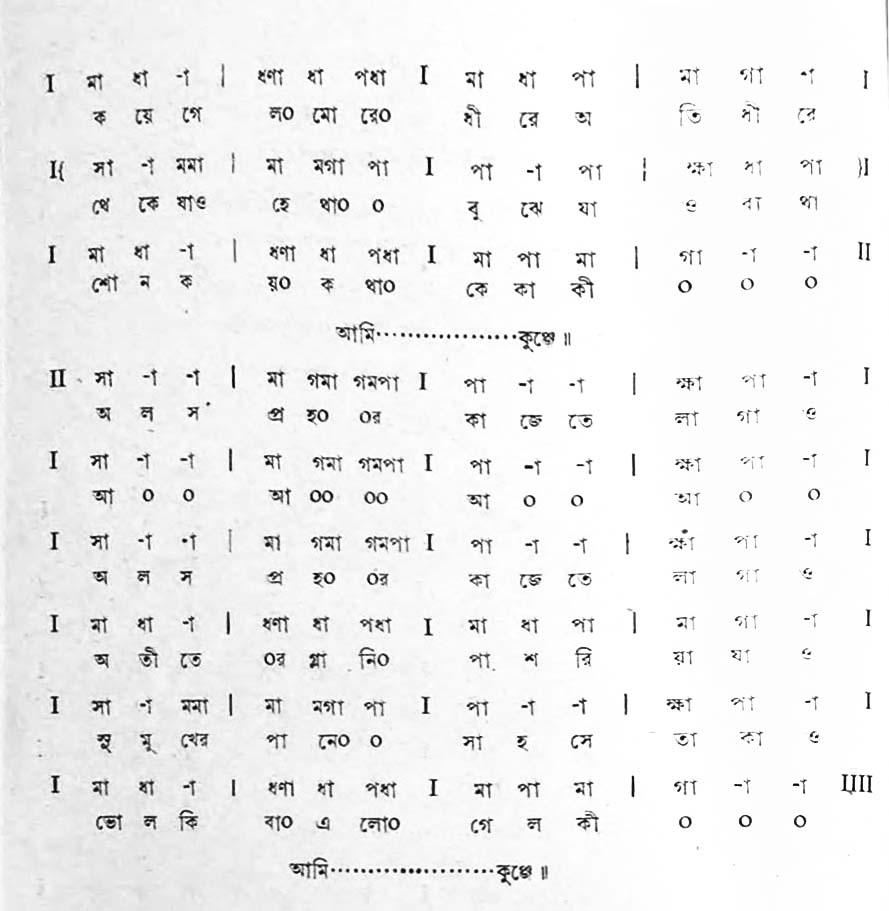 I মা ধা -া | ধণা ধা পধা I মা ধা পা | মা গা -া I
ক য়ে গে ল০ মো রে০ ধী রে অ তি ধী রে
I{ সা -া মমা | মা মগা পা I পা -া পা | ক্ষা ধা পা }I
থে কে যাও হে থা০ ০ বু ঝে যা ও ব্য থা
I মা ধা -া | ধণা ধা পধা I মা পা মা | গা -া -া II
শো ন ক য়০ ক থা০ কে কা কী ০ ০ ০
আমি··················কুঞ্জে॥
II সা -া -া | মা গমা গমপা I পা -া -া | ক্ষা পা -া I
অ ল স প্র হ০ ০র কা জে তে লা গা ও
I সা -া -া | মা গমা গমপা I পা -া -া | ক্ষা পা -া I
আ ০ ০ আ ০০ ০০ আ ০ ০ আ ০ ০
I সা -া -া | মা গমা গমপা I পা -া -া | ক্ষা পা -া I
অ ল স প্র হ০ ০র কা জে তে লা গা ও
I মা ধা -া | ধণা ধা পধা I মা ধা পা | মা গা -া I
অ তী তে ০র গ্লা নি০ পা শ রি য়া যা ও
I সা -া মমা | মা মগা পা I পা -া -া | ক্ষা পা -া I
সু মু খের পা নে০ ০ সা হ সে তা কা ও
I মা ধা -া | ধণা ধা পধা I মা পা মা | গা -া -া IIII
ভো ল কি বা০ এ লো০ গে ল কী ০ ০ ০
আমি·····················কুঞ্জে॥